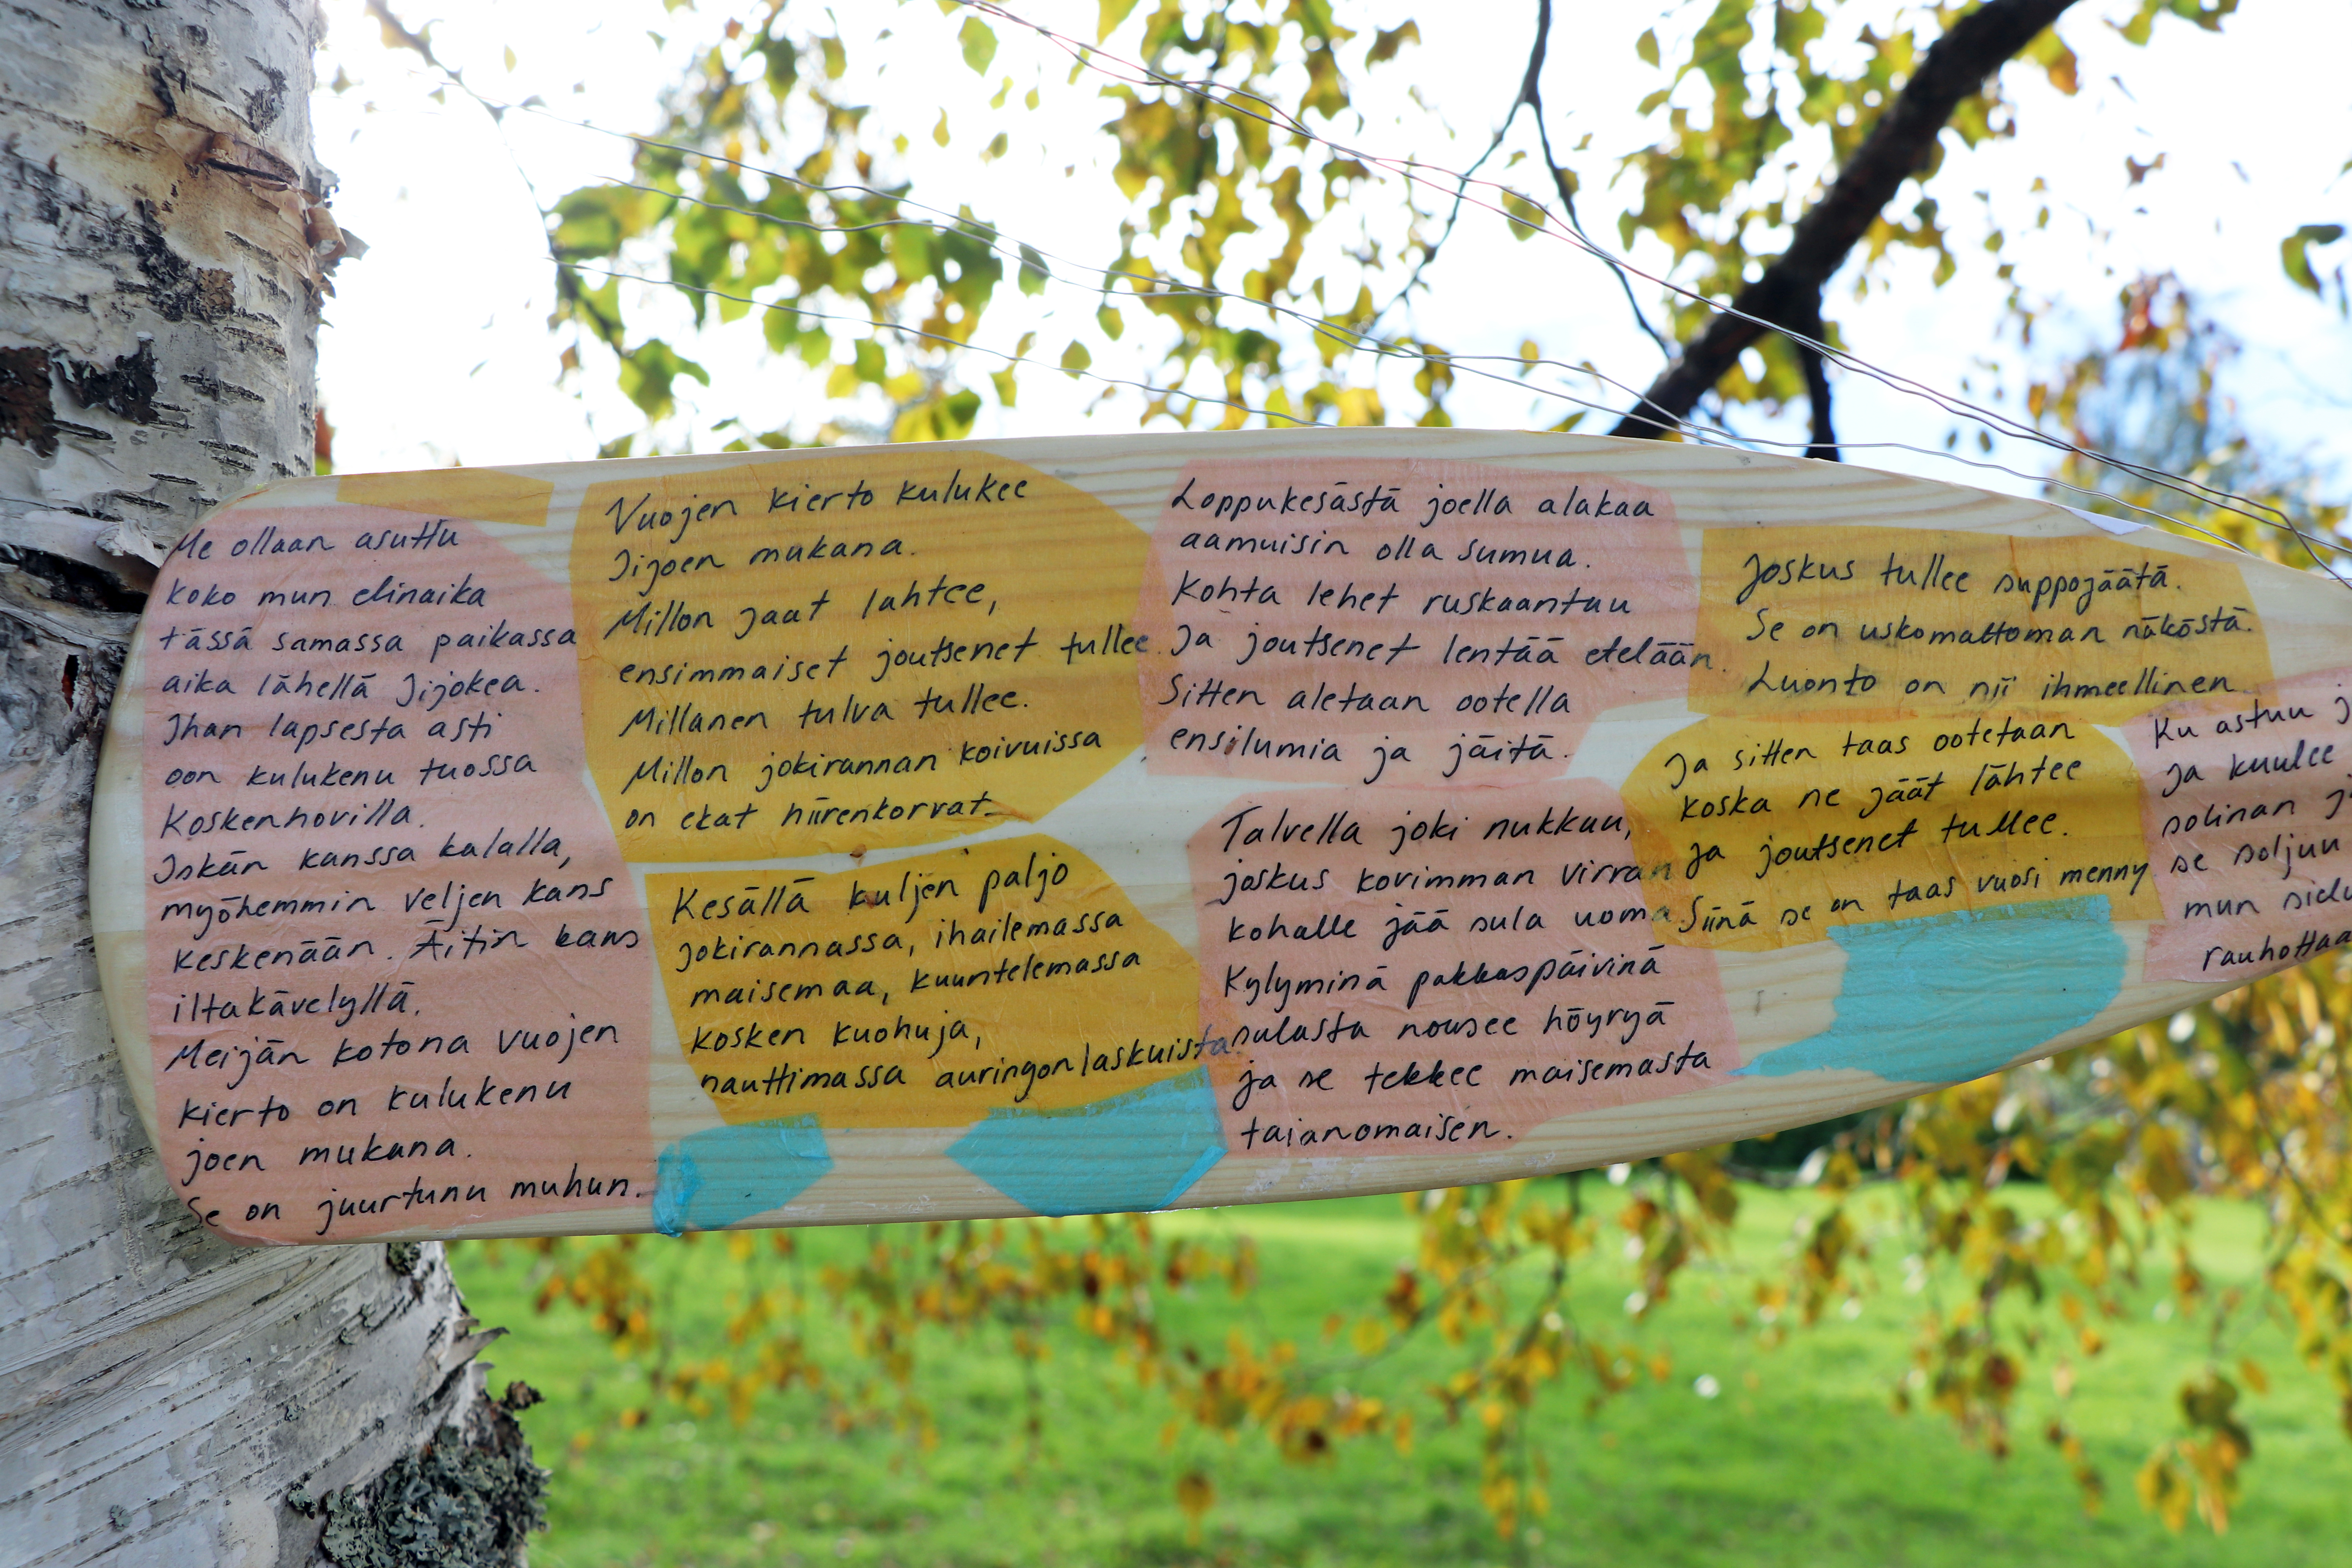 Me ollaan asuttu
koko mun elinaika
tässä samassa paikassa
aika lähellä Iijokea.
Ihan lapsesta asti
oon kulukenu tuossa
Koskenhovilla.
Iskän kanssa kalalla,
myöhemmin veljen kans
keskenään. Äitin kans
iltakävelyllä.
Meijän kotona vuojen
kierto on kulukenu
joen mukana.
Se on juurtunu muhun.
Vuojen kierto kulukee
Iijoen mukana.
Millon jäät lähtee,
ensimmäiset joutsenet tullee.
Millanen tulva tullee.
Millon jokirannan koivuissa
on ekat hiirenkorvat.
Kesällä kuljen paljo
jokirannassa, ihailemassa
maisemaa, kuuntelemassa
kosken kuohuja,
nauttimassa auringonlaskuista.
Loppukesästä joella alakaa
aamuisin olla sumua.
Kohta lehet ruskaantuu
Ja joutsenet lentää etelään.
Sitten aletaan ootella
ensilumia ja jäitä.
Talvella joki nukkuu,
joskus kovimman virran
kohalle jää sula uoma.
Kylyminä pakkaspäivinä
sulasta nousee höyryä
ja se tekkee maisemasta
taianomaisen.
Joskus tullee suppojäätä.
Se on uskomattoman näköstä.
Luonto on nii ihmeellinen.
Ja sitten taas ootetaan
koska ne jäät lähtee
ja joutsenet tullee.
Siinä se on taas vuosi menny
Ku astuu j
ja kuulee
solinan j
se soljuu
mun sielu
rauhottaa